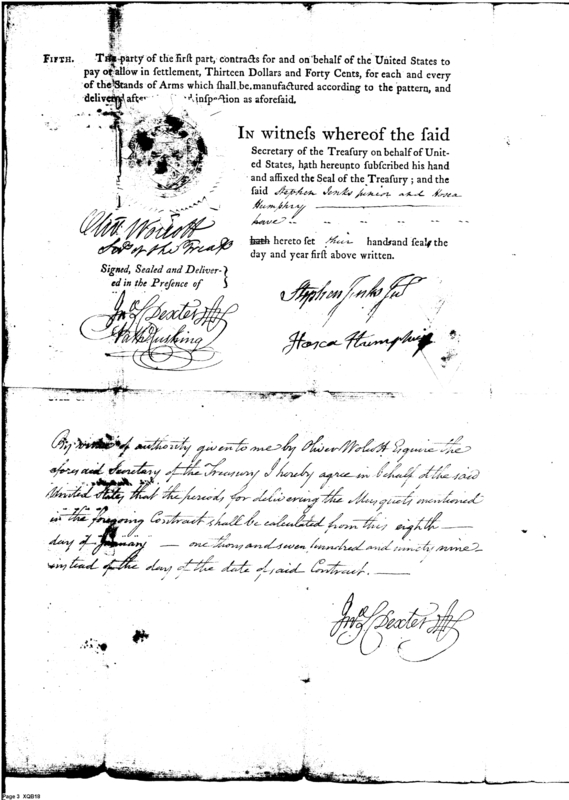 FIFTH. The party of the first part, contracts for and on behalf of the United States to
pay or allow in settlement, Thirteen Dollars and Forty Cents, for each and every
of the Stands of Arms which shall be manufactured according to the pattern, and
delivered after inspection as aforesaid.
IN witness whereof the said
Secretary of the Treasury on behalf of Unit-
ed States, hath hereunto subscribed his hand
and affixed the Seal of the Treasury; and the
said Stephen Jenks junior and Hosea
Humphry
have
hath hereto set their hands and seals the
day and year first above written.
Oliv Wolcott
Secy of the Treasy
Signed, Sealed and Deliver-
ed in the Presence of
Jno S Dexter
Nath Cushing
Stephen Jenks Jur
Hosea Humphry
By virtue of authority given to me by Oliver Wolcott Esquire the
aforesaid Secretary of the Treasury I hereby agree in behalf of the said
United States, that the periods for delivering the Musquets mentioned
in the foregoing Contract shall be calculated from this eighth
day of January one thousand seven hundred and ninety nine
instead of the day of the date of said Contract.
Jno S Dexter
Page 3 XQB18